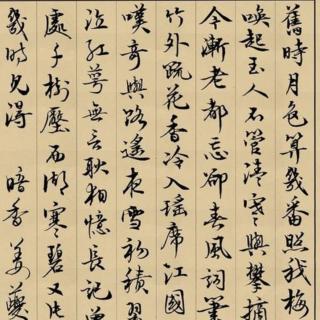 舊時月色算幾番照我梅
喚起玉人不管清寒與攀摘
今漸老都忘卻春風詞筆
竹外疏花香冷入瑤席江國
嘆寄與路遙夜雪初積翠
泣紅萼無言耿相憶長記曾
處千樹壓西湖寒碧又片
幾時見得 暗香 姜夔